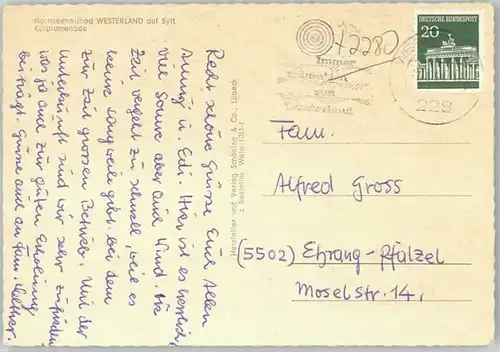 Nordseeheilbad WESTERLAND auf Sylt
Kurpromenade
Recht schöne Grüsse Euch Allen
u. Edi. Hier ist es herrlich,
viel Sonne aber auch Wind. Die
Zeit vergeht zu schnell, weil es
keine Langweile gibt bei dem
zur Zeit grossen Betrieb. Mit der
Unterkunft sind wir sehr zufrieden
was ja auch zur guten Erholung
beiträgt. Grüsse auch an Fam.
Hersteller und Verlag Schöning & Co., Lübeck
z Bestellnr. West
2280
Immer
von
Westerland
DEUTSCHE BUNDESPOST
20
228
Fam.
Alfred Gross
(5502) Ehrang-Pfalzel
Moselstr. 14,